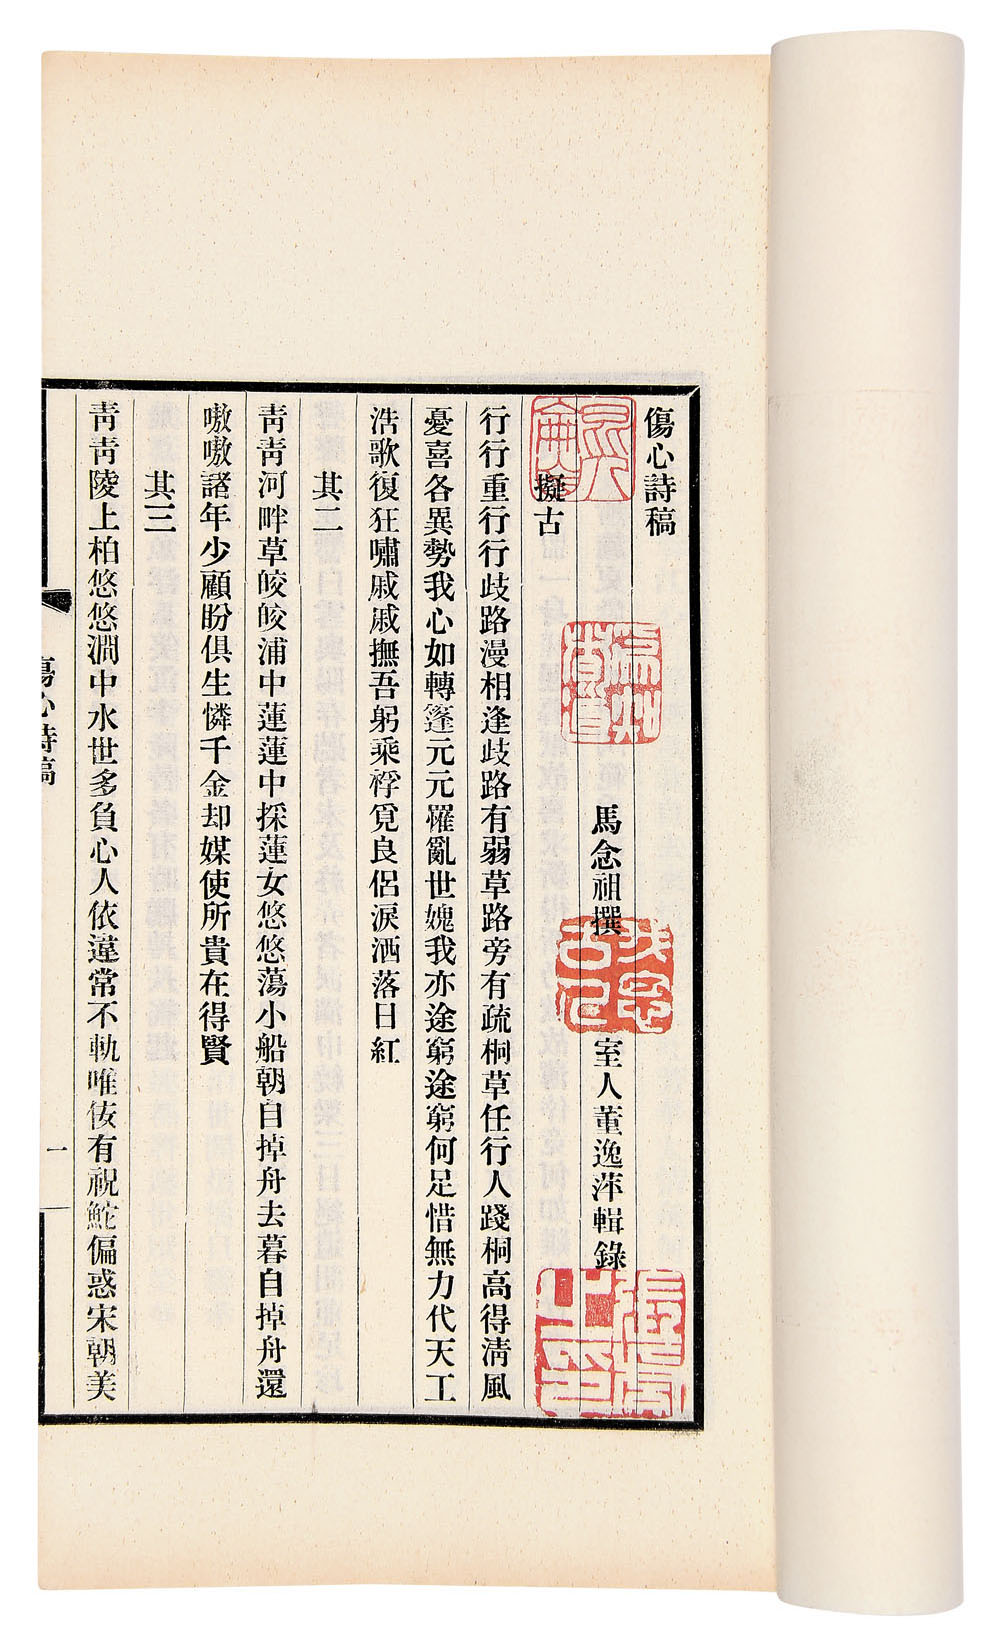 傷心詩稿
馬念祖撰　室人董逸萍輯錄
擬古
行行重行行歧路漫相逢歧路有弱草路旁有疏桐草任行人踐桐高得淸風
憂喜各異勢我心如轉篷元元罹亂世媿我亦途窮途窮何足惜無力代天工
浩歌復狂嘯戚戚撫吾躬乘桴覓良侶淚洒落日紅
其二
靑靑河畔草皎皎浦中蓮蓮中採蓮女悠悠蕩小船朝自掉舟去暮自掉舟還
嗷嗷諸年少顧盼俱生憐千金却媒使所貴在得賢
其三
靑靑陵上柏悠悠澗中水世多負心人依違常不軌唯佞有祝鮀偏惑宋朝美
傷心詩稿
一